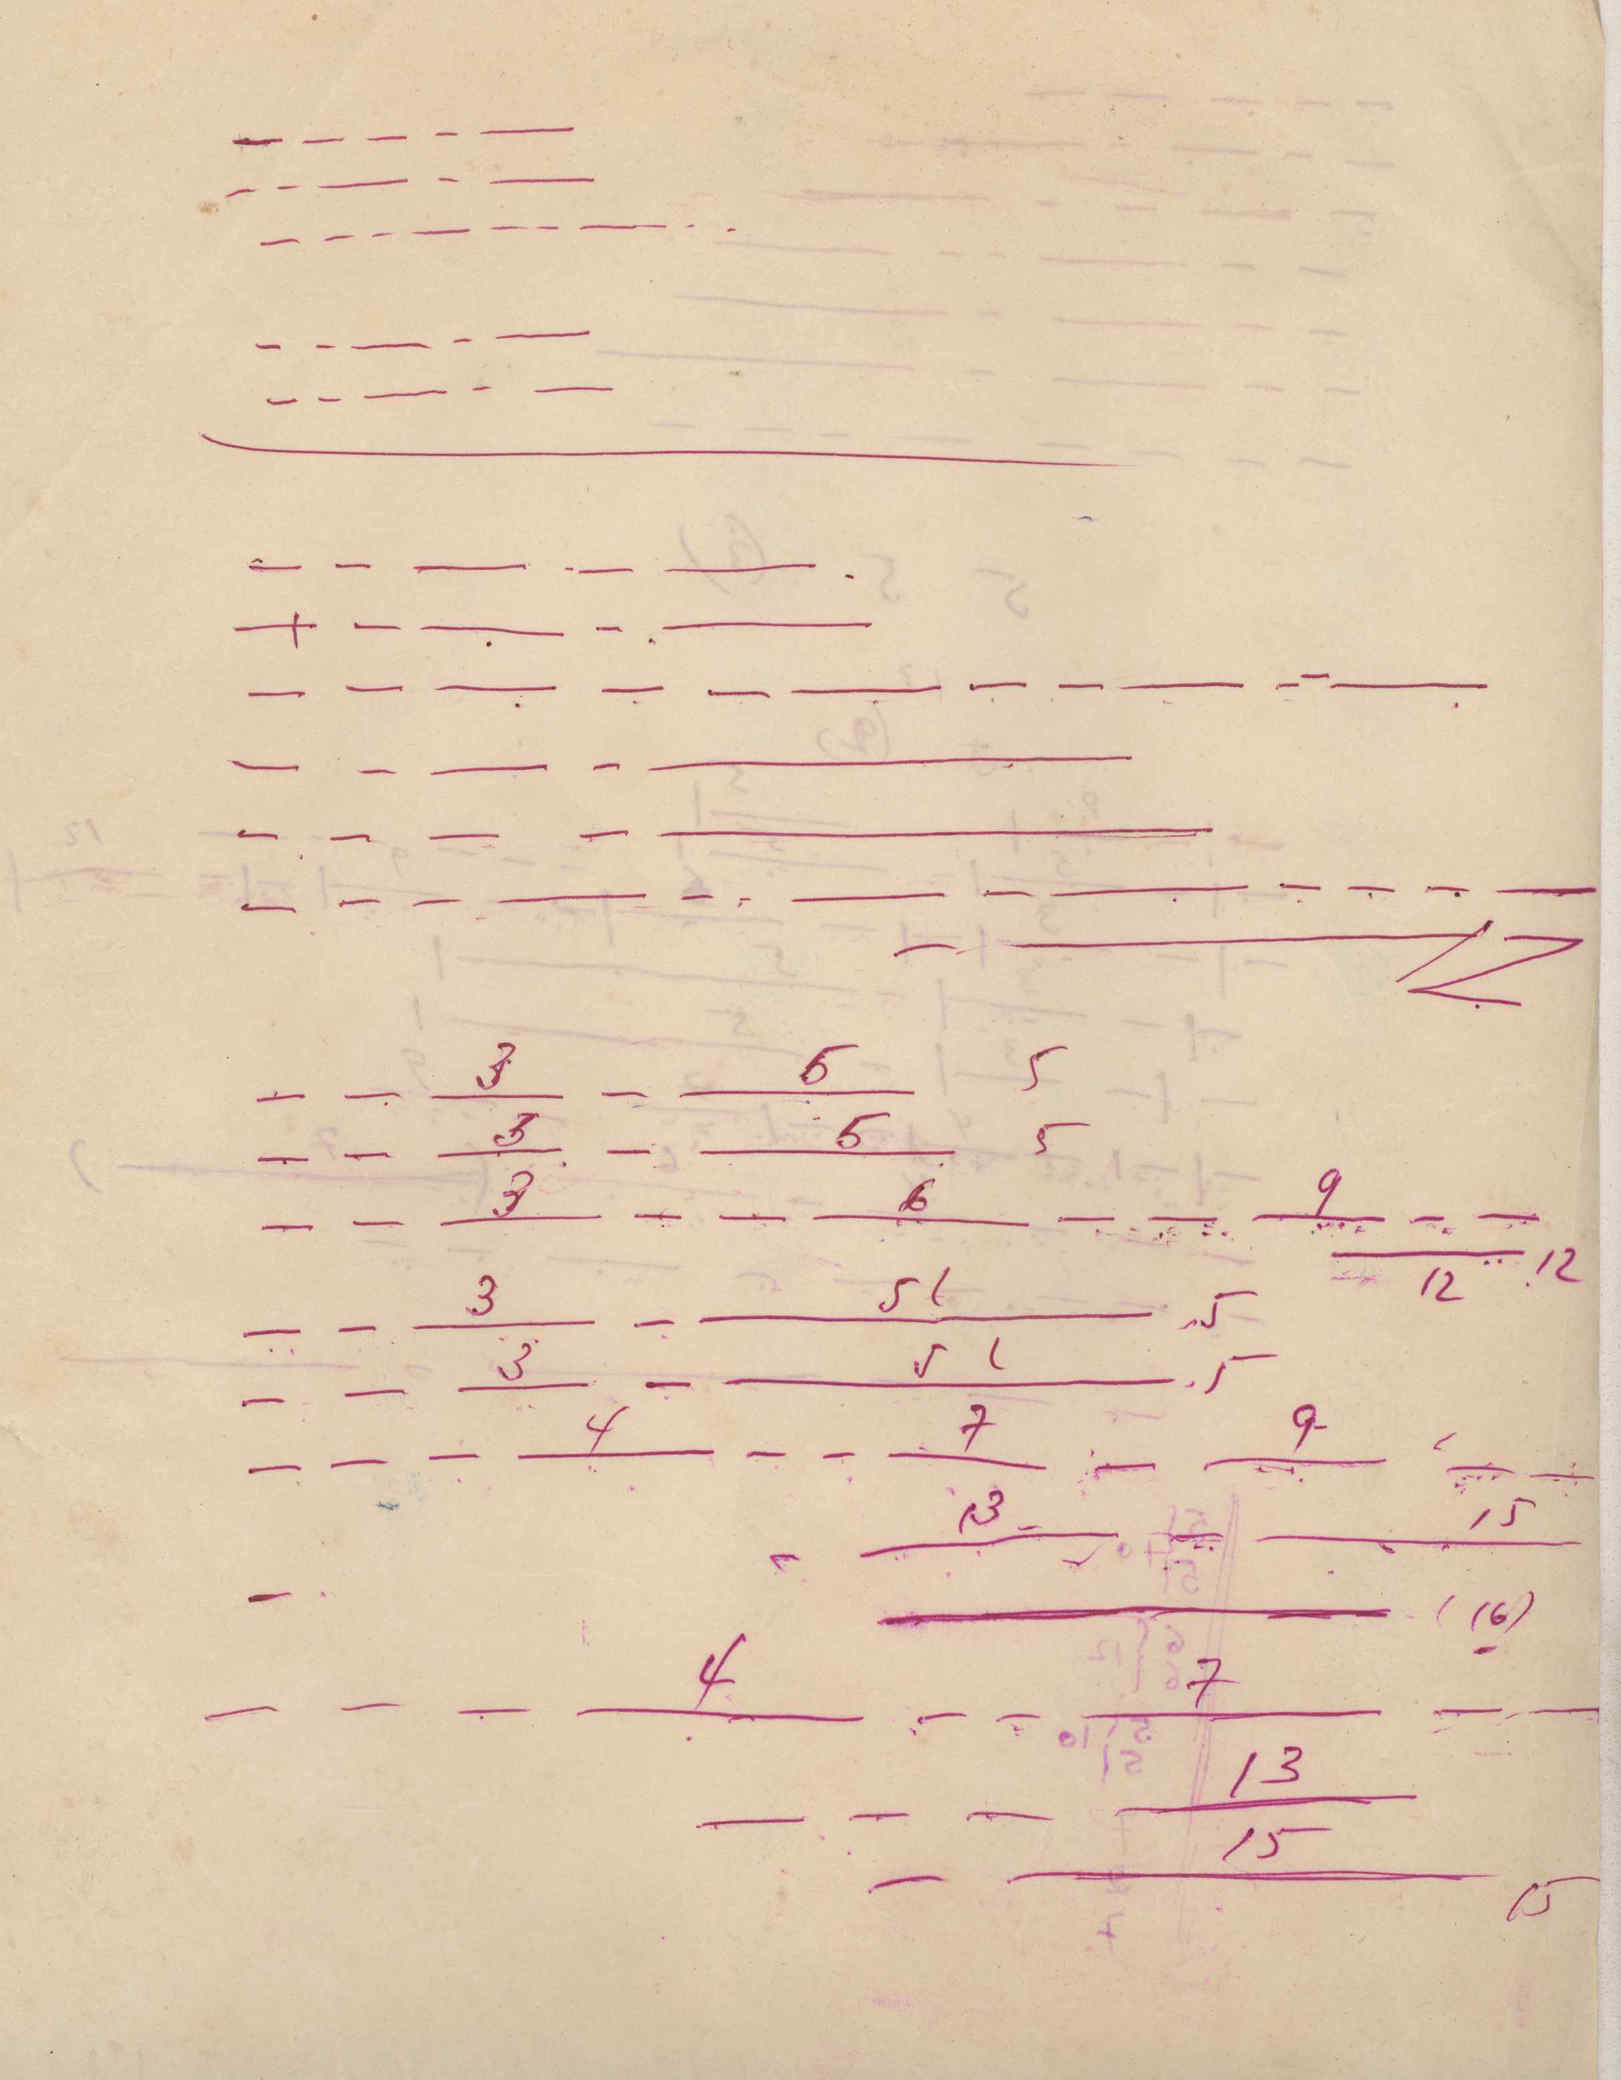 — – – - —
- - — - —
– - - — - - — - -
– - — - —
– - — - —
– – — - – — .
+ – — - . —
– – — – – — – – — - – —
– – — - —
– – — – —
– – – — - - — – — – – – —
– —
– – 3 – 5 5
– – 3 – 5 5
– – 3 – – 6 – – 9 – –
12 12
– – 3 – 5 ( 5
– – 3 – 5 ( 5
– – – 4 – – 7 – 9 – –
– 13 – 15
– — (16)
– – – 4 – – 7 – –
– – – 13
– 15 15